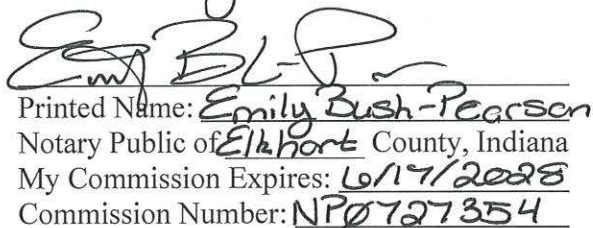 Printed Name: Emily Bush-Pearson
Notary Public of Elkhart County, Indiana
My Commission Expires: 6/17/2028
Commission Number: NP0727354